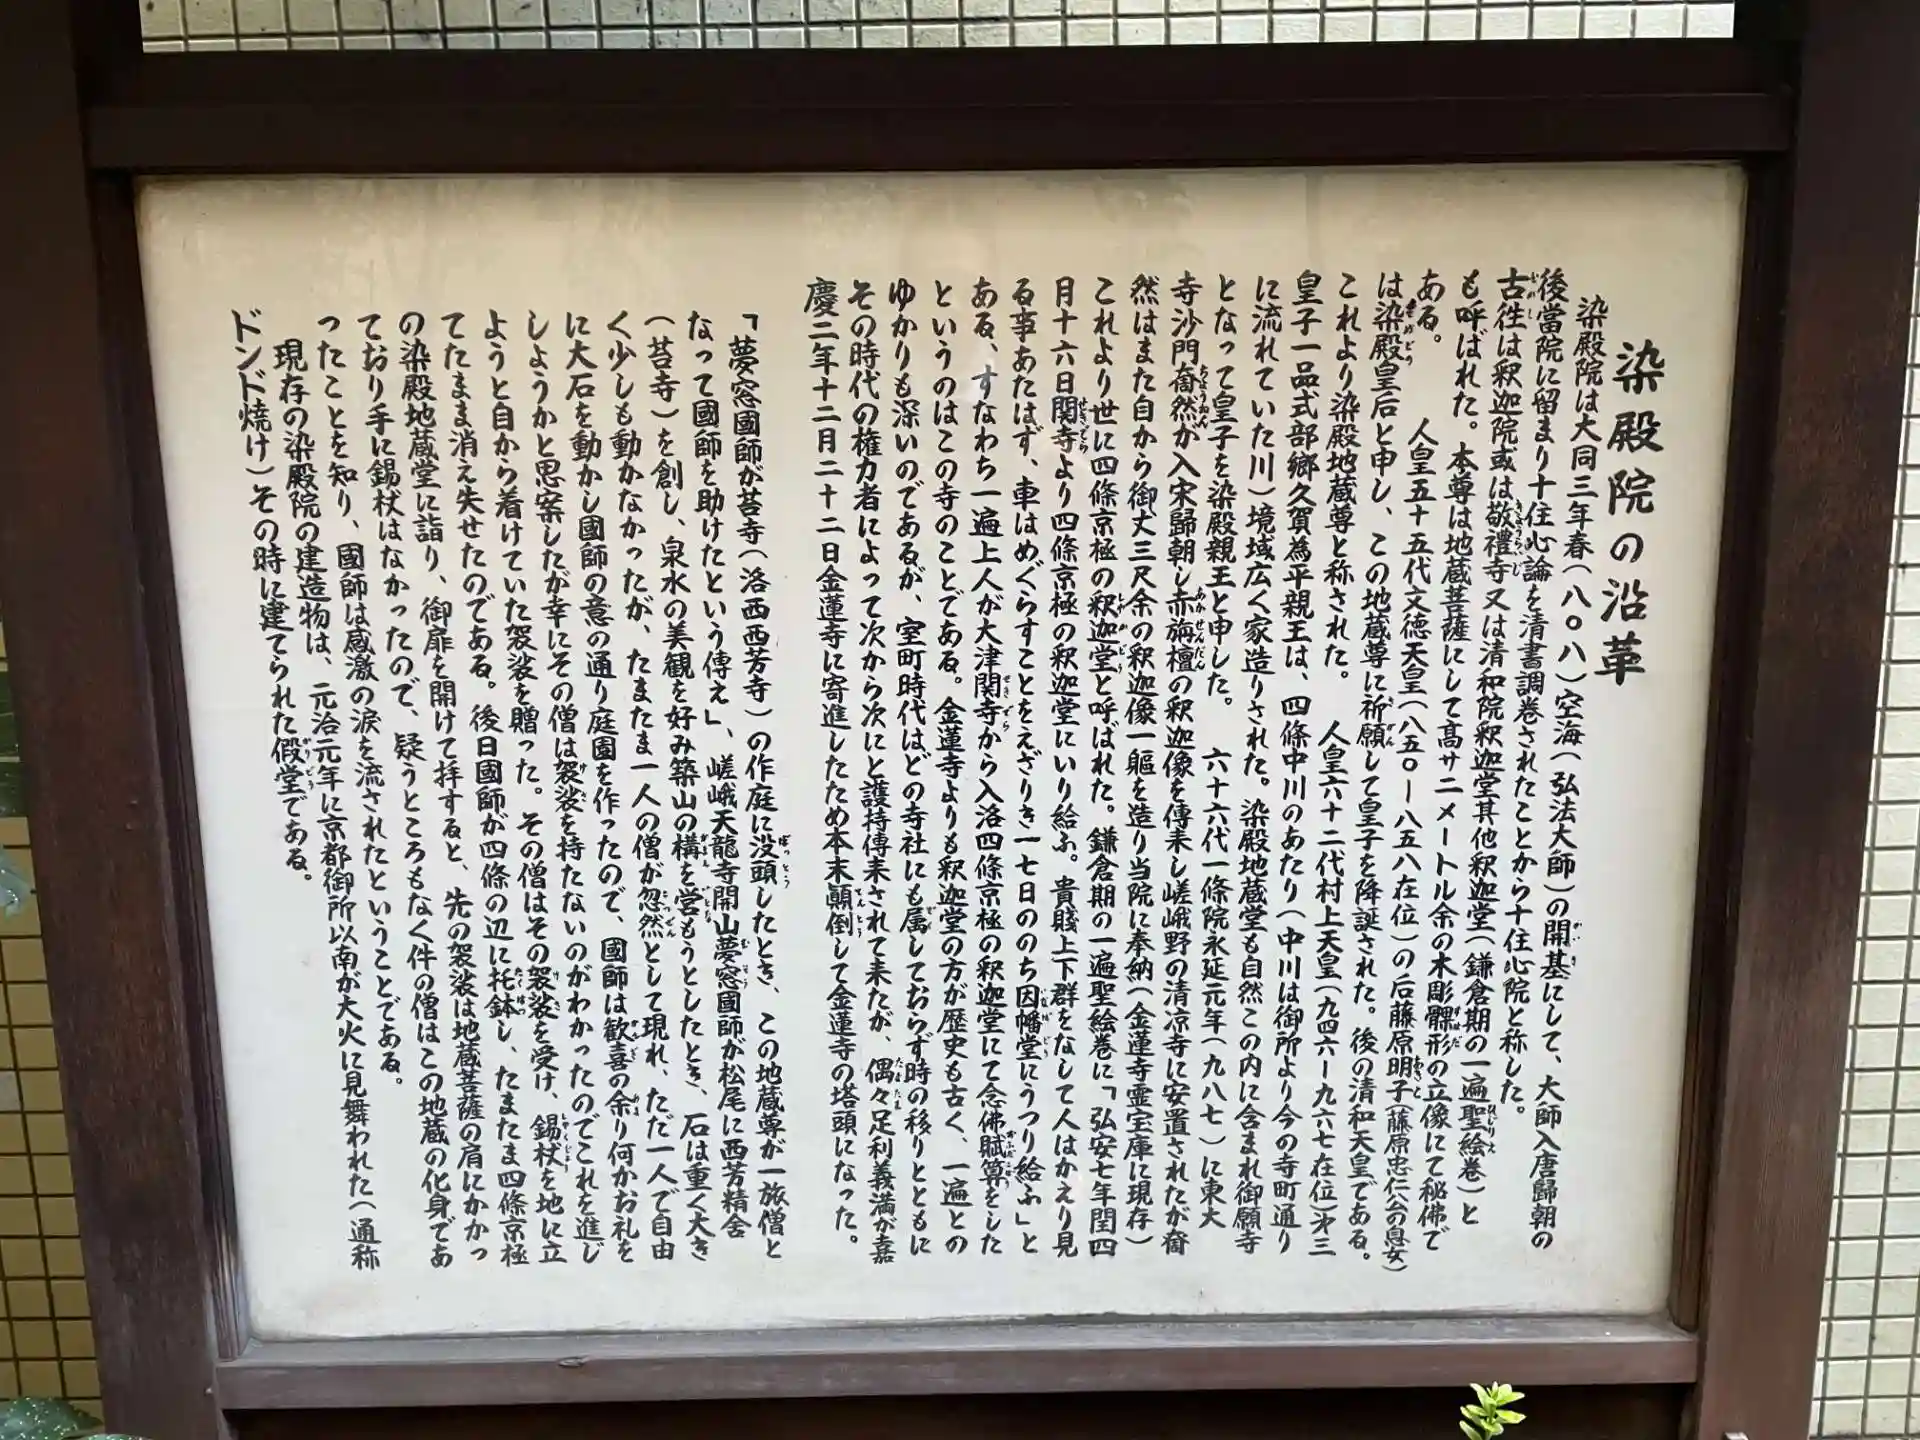 染殿院の沿革
染殿院は大同三年春(八〇八)空海(弘法大師)の開基にして、大師入唐歸朝の
後當院に留まり十住心論を清書調巻されたことから十住心院と称した。
古徃は釈迦院或は敬禮寺又は清和院釈迦堂其他釈迦堂(鎌倉期の一遍聖絵巻)と
も呼ばれた。本尊は地蔵菩薩にして髙サ二メートル余の木彫髁形の立像にて秘佛で
ある。 人皇五十五代文徳天皇(八五〇ー八五八在位)の后藤原明子(藤原忠仁公の息女)
は染殿皇后と申し、この地蔵尊に祈願して皇子を降誕された。後の清和天皇である。
これより染殿地蔵尊と称された。 人皇六十二代村上天皇(九四六ー九六七在位)㐧三
皇子一品式部郷久賀為平親王は、四條中川のあたり(中川は御所より今の寺町通り
に流れていた川)境域広く家造りされた。染殿地蔵堂も自然この内に含まれ御願寺
となって皇子を染殿親王と申した。 六十六代一條院永延元年(九八七)に東大
寺沙門奝然が入宋歸朝し赤栴檀の釈迦像を傳来し嵯峨野の清凉寺に安置されたが奝
然はまた自から御丈三尺余の釈迦像一軀を造り当院に奉納(金蓮寺霊宝庫に現存)
これより世に四條京極の釈迦堂と呼ばれた。鎌倉期の一遍聖絵巻に「弘安七年閏四
月十六日関寺より四條京極の釈迦堂にいり給ふ。貴賤上下群をなして人はかえり見
る事あたはず、車はめぐらすことをえざりき一七日ののち因幡堂にうつり給ふ」と
ある、すなわち一遍上人が大津関寺から入洛四條京極の釈迦堂にて念佛賦算をした
というのはこの寺のことである。金蓮寺よりも釈迦堂の方が歴史も古く、一遍との
ゆかりも深いのであるが、室町時代はどの寺社にも属しておらず時の移りとともに
その時代の権力者によって次から次にと護持傳来されて来たが、偶々足利義満が嘉
慶二年十二月二十二日金蓮寺に寄進したため本末顚倒して金蓮寺の塔頭になった。
「夢窓國師が苔寺(洛西西芳寺)の作庭に没頭したとき、この地蔵尊が一旅僧と
なって國師を助けたという傳え」、嵯峨天龍寺開山夢窓國師が松尾に西芳精舎
(苔寺)を創し、泉水の美観を好み築山の構を営もうとしたとき、石は重く大き
く少しも動かなかったが、たまたま一人の僧が忽然として現れ、ただ一人で自由
に大石を動かし國師の意の通り庭園を作ったので、國師は歓喜の余り何かお礼を
しようかと思案したが幸にその僧は袈裟を持たないのがわかったのでこれを進じ
ようと自から着けていた袈裟を贈った。その僧はその袈裟を受け、錫杖を地に立
てたまま消え失せたのである。後日國師が四條の辺に托鉢し、たまたま四條京極
の染殿地蔵堂に詣り、御扉を開けて拝すると、先の袈裟は地蔵菩薩の肩にかかっ
ており手に錫杖はなかったので、疑うところもなく件の僧はこの地蔵の化身であ
ったことを知り、國師は感激の涙を流されたということである。
現存の染殿院の建造物は、元治元年に京都御所以南が大火に見舞われた(通称
ドンド焼け)その時に建てられた假堂である。